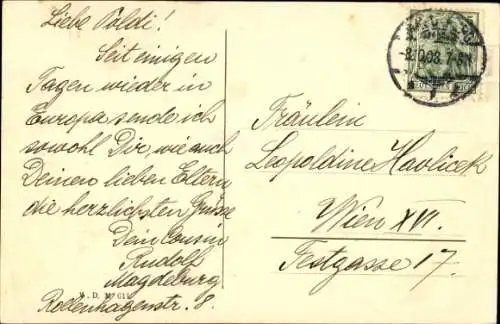 Liebe Poldi!
Seit einigen
Tagen wieder in
Europa sende ich
sowohl Dir, wie auch
Deinen lieben Eltern
die herzlichsten Grüsse
Dein Cousin
Rudolf
Magdeburg
Rollenhagenstr. 8.
Fräulein
Leopoldine Havlicek
Wien XVI.
Festgasse 17.